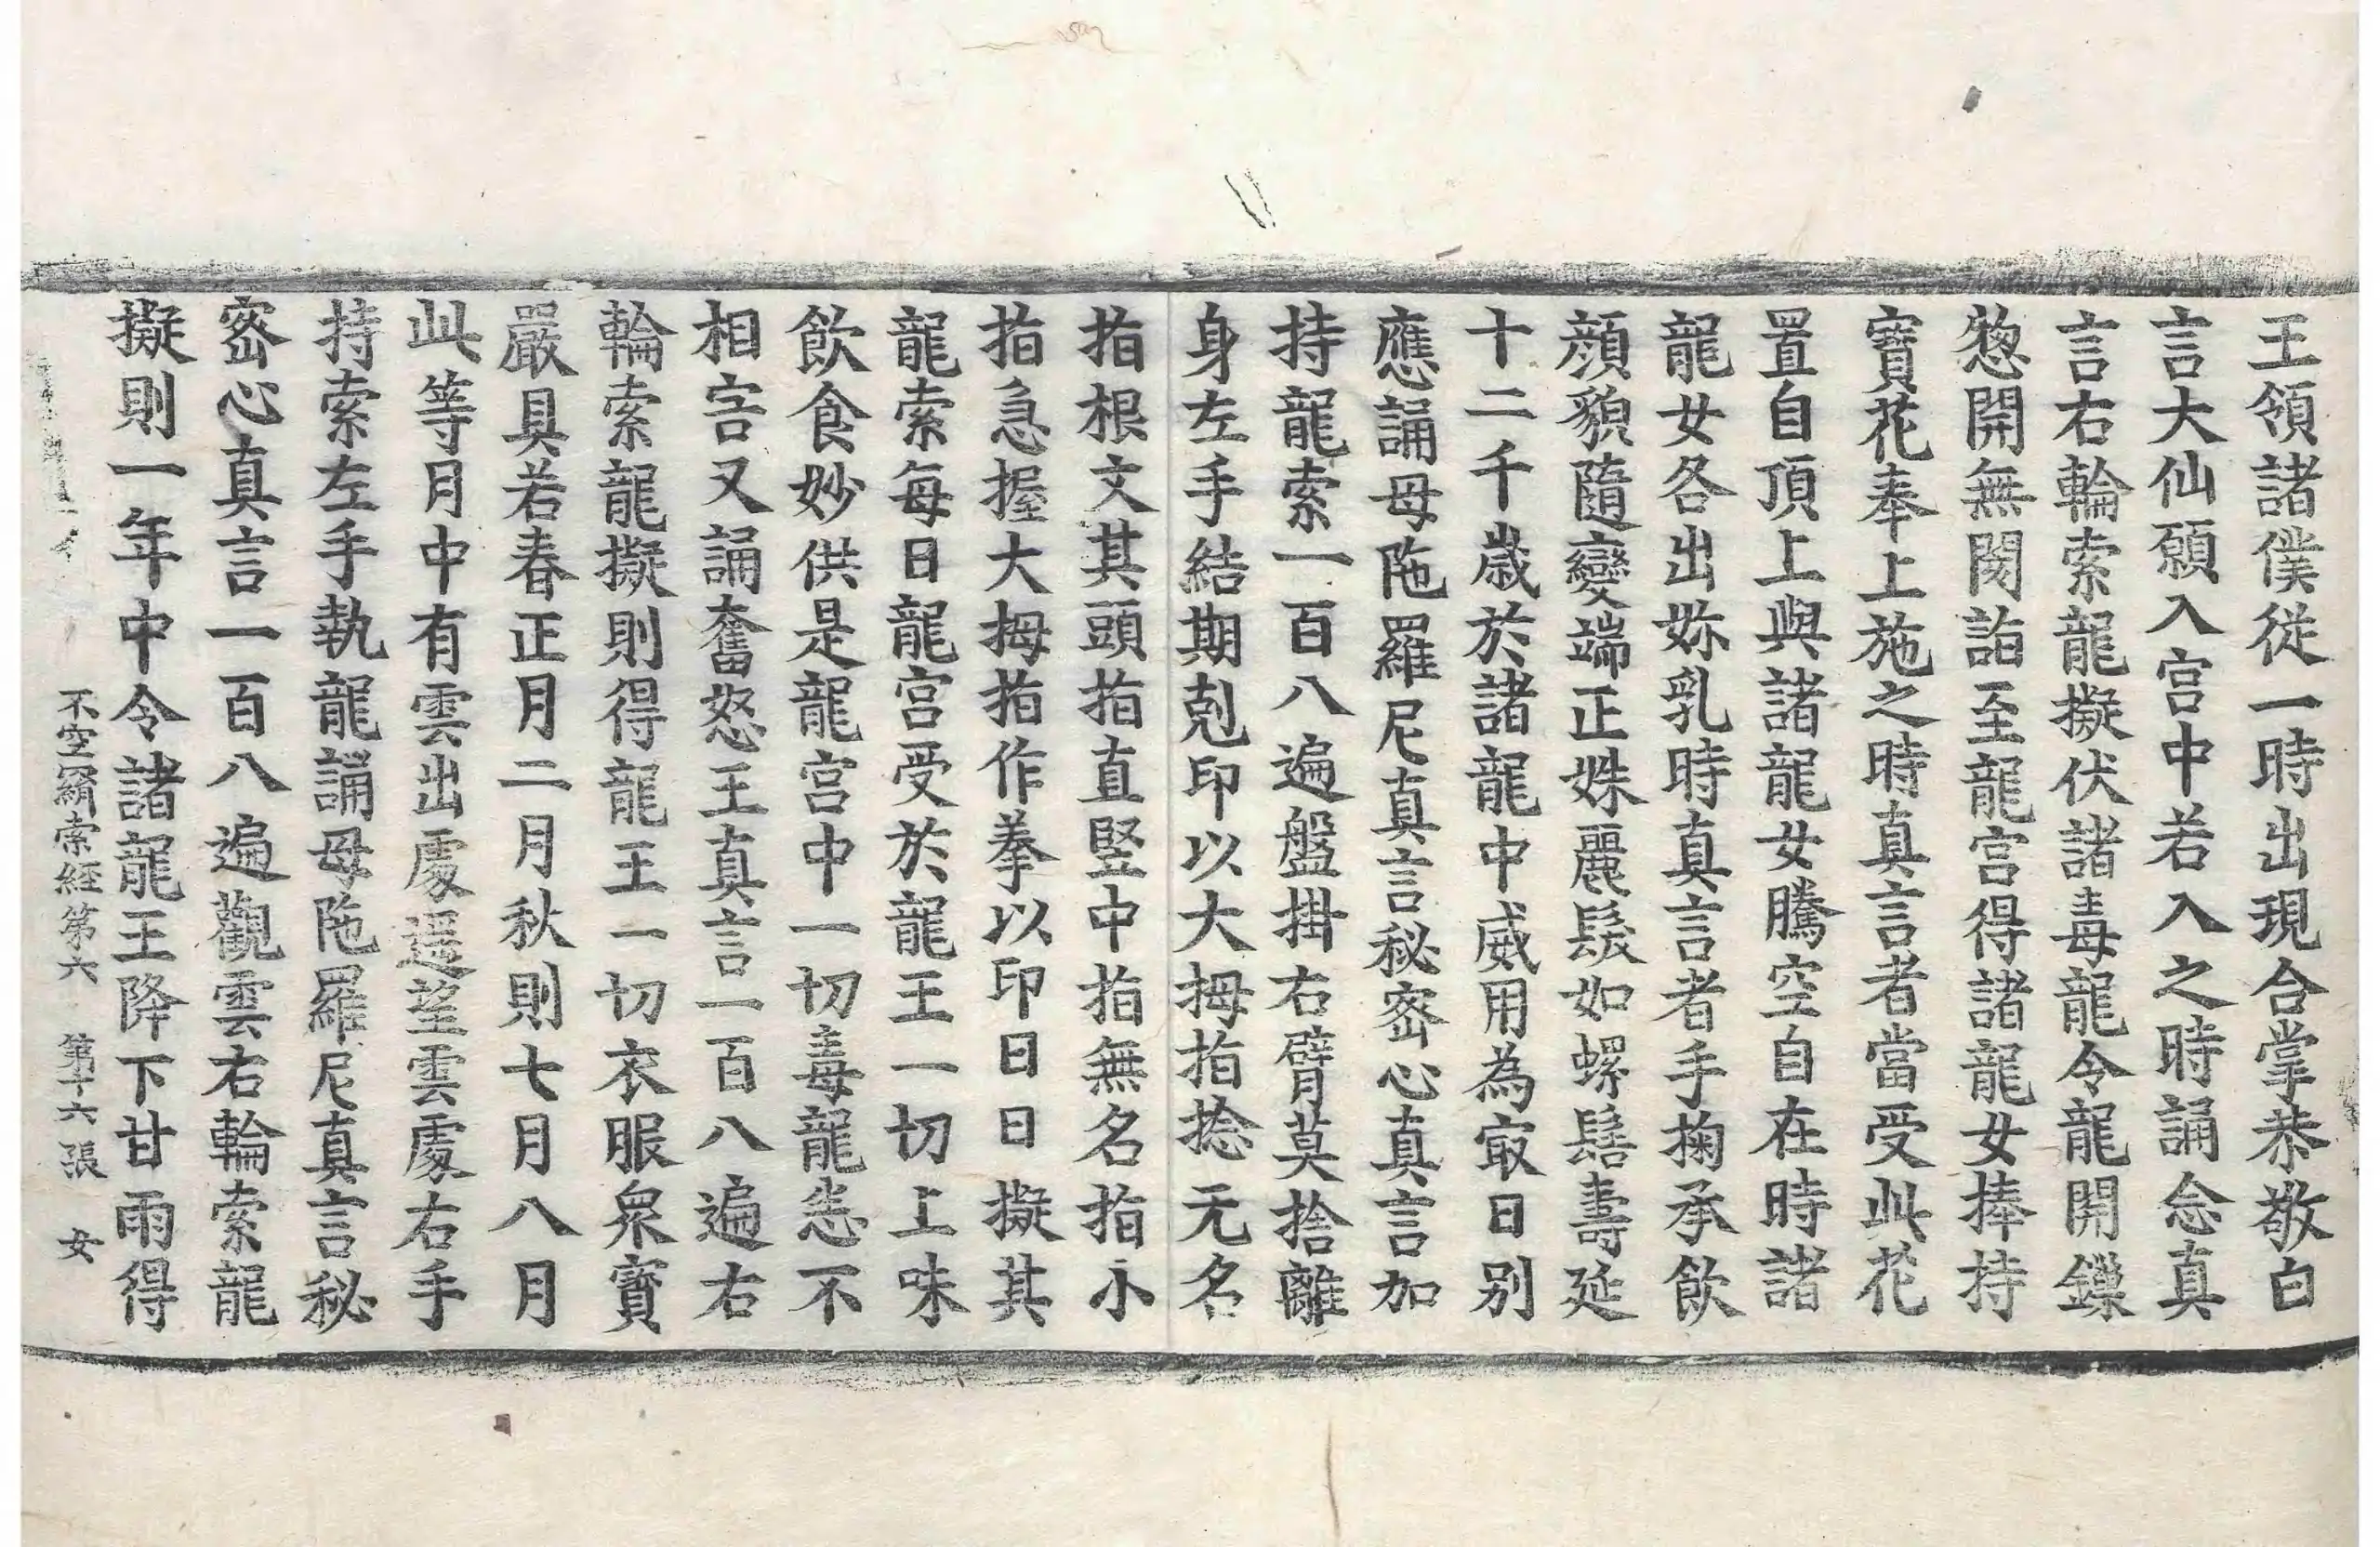 王領諸僕從一時出現合掌恭敬白
言大仙願入宫中若入之時誦念真
言右輪索龍擬伏諸毒龍令龍開鏁
愡開無閡詣至龍宫得諸龍女捧持
寳花奉上施之時真言者當受此花
置自頂上與諸龍女騰空自在時諸
龍女各出妳乳時真言者手掬承飲
顔貌隨變端正姝麗髮如螺髻壽延
十二千歲於諸龍中威用為㝡日别
應誦母陁羅尼真言秘宻心真言加
持龍索一百八遍盤掛右臂莫捨離
身左手結期剋印以大拇指捻无名
指根文其頭指直竪中指無名指小
指急握大拇指作拳以印日日擬其
龍索每日龍宫受於龍王一切上味
飲食妙供是龍宫中一切毒龍恙不
相害又誦奮怒王真言一百八遍右
輪索龍擬則得龍王一切衣服衆寳
嚴具若春正月二月秋則七月八月
此等月中有雲出處遥望雲處右手
持索左手執龍誦母陁羅尼真言秘
宻心真言一百八遍觀雲右輪索龍
擬則一年中令諸龍王降下甘雨得
不空羂索經第六 第十六張 女